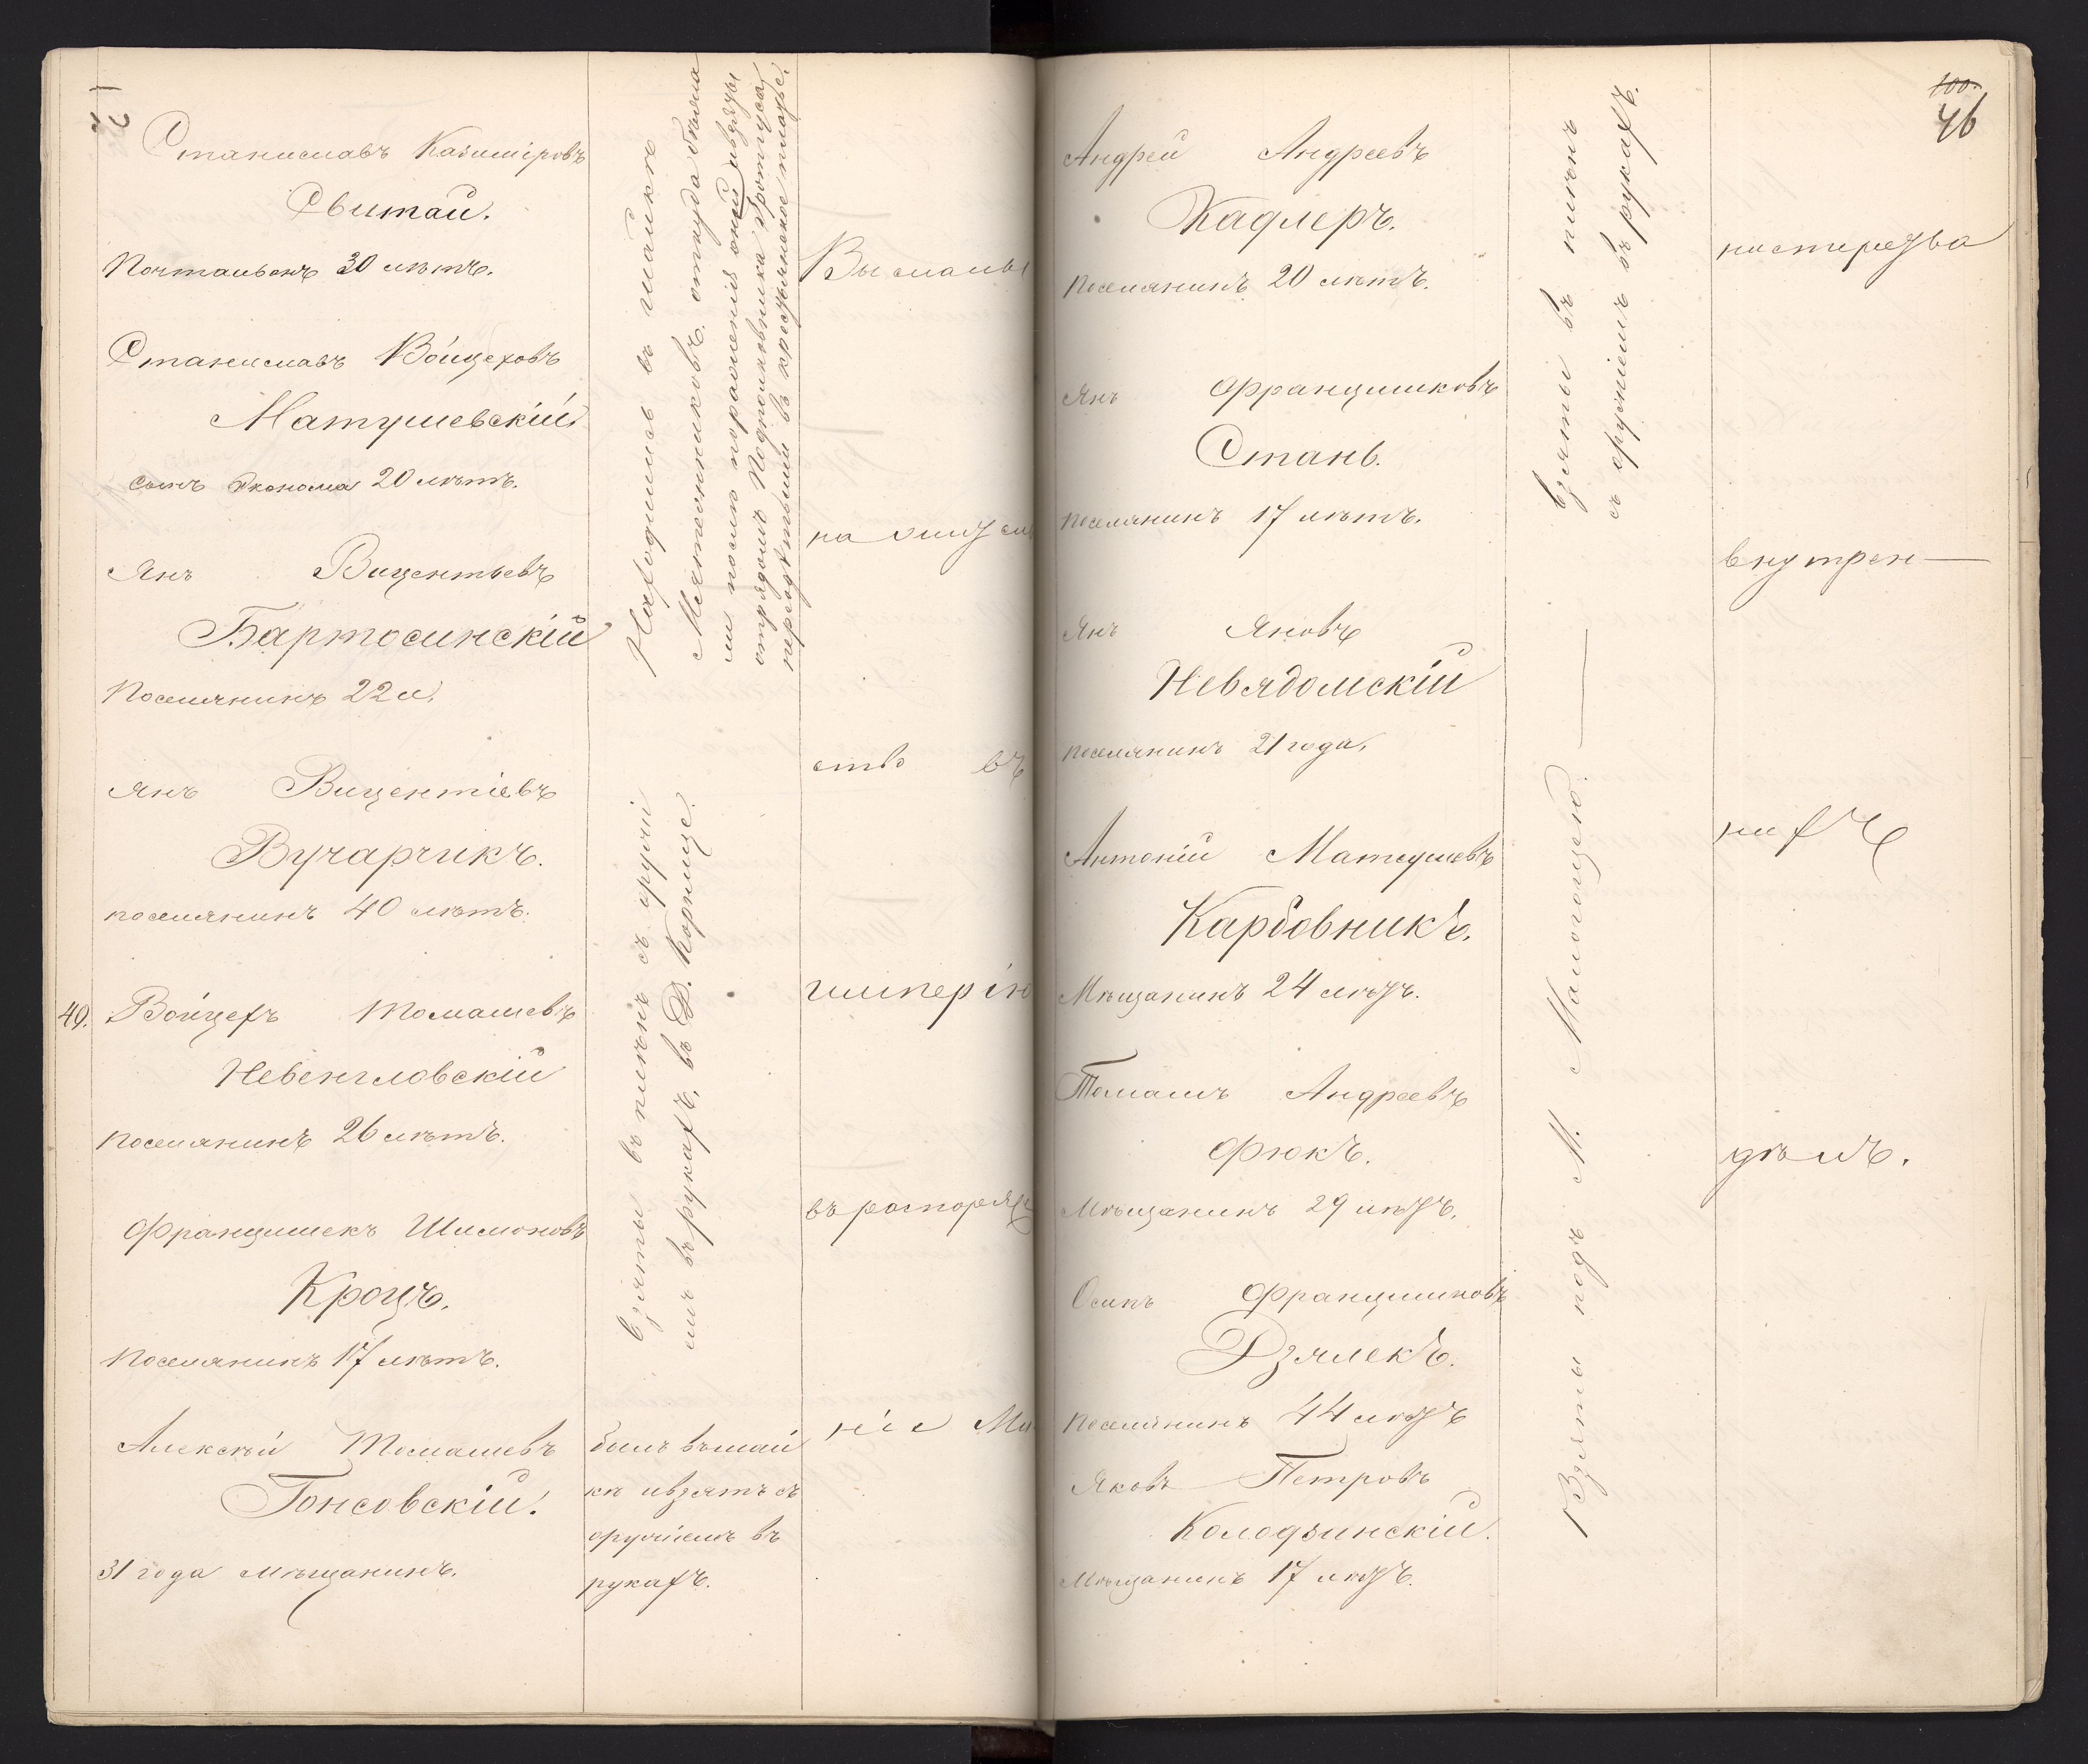 Станиславъ Казиміровъ
Свитай.
Почтальонъ 30 лѣтъ.
Станиславъ Войцеховъ
Матушевскій
сынъ Эконома 20 лѣтъ.
Янъ Вицентьевъ
Бартосинскій
Поселянинъ 22 л.
Янъ Вицентіевъ
Вучарчикъ.
поселянинъ 40 лѣтъ.
49. Войцехъ Томашевъ
Невенгловскій
поселянинъ 26 лѣтъ.
Францишекъ Шимоновъ
Кроцъ.
поселянинъ 17 лѣтъ.
Алексѣй Томашевъ
Гонсовскій.
31 года мѣщанинъ.
Находились въ шайкѣ
Мятежниковъ, откуда бѣжа
ли послѣ пораженія оной и взяты
отрядомъ Подполковника
переодѣтыми въ крестьянское платье.
Взяты въ плѣнъ съ оружі
емъ въ рукахъ, въ Д. Корнице.
былъ въ шай
кѣ и взятъ съ
оружіемъ въ
рукахъ.
Высланы
на
ство въ
имперію
въ распоряже
ніе Ми
100
46
Андрей Андреевъ
Кадлеръ.
поселянинъ 20 лѣтъ.
Янъ Францишковъ
Стань.
поселянинъ 17 лѣтъ.
Янъ Яновъ
Невядомскій
поселянинъ 21 года.
Антоній Матеушевъ
Карбовникъ.
Мѣщанинъ 24 лѣтъ.
Томашъ Андреевъ
Фюкъ.
Мѣщанинъ 29 лѣтъ.
Осипъ Францишковъ
Дзялекъ.
поселянинъ 44 лѣтъ
Яковъ Петровъ
Колодзинскій.
Мѣщанинъ 17 лѣтъ.
Взяты въ плѣнъ
съ оружіемъ въ рукахъ.
Взяты подъ М. Малогощею.
нистерства
внутрен
нихъ
дѣлъ.